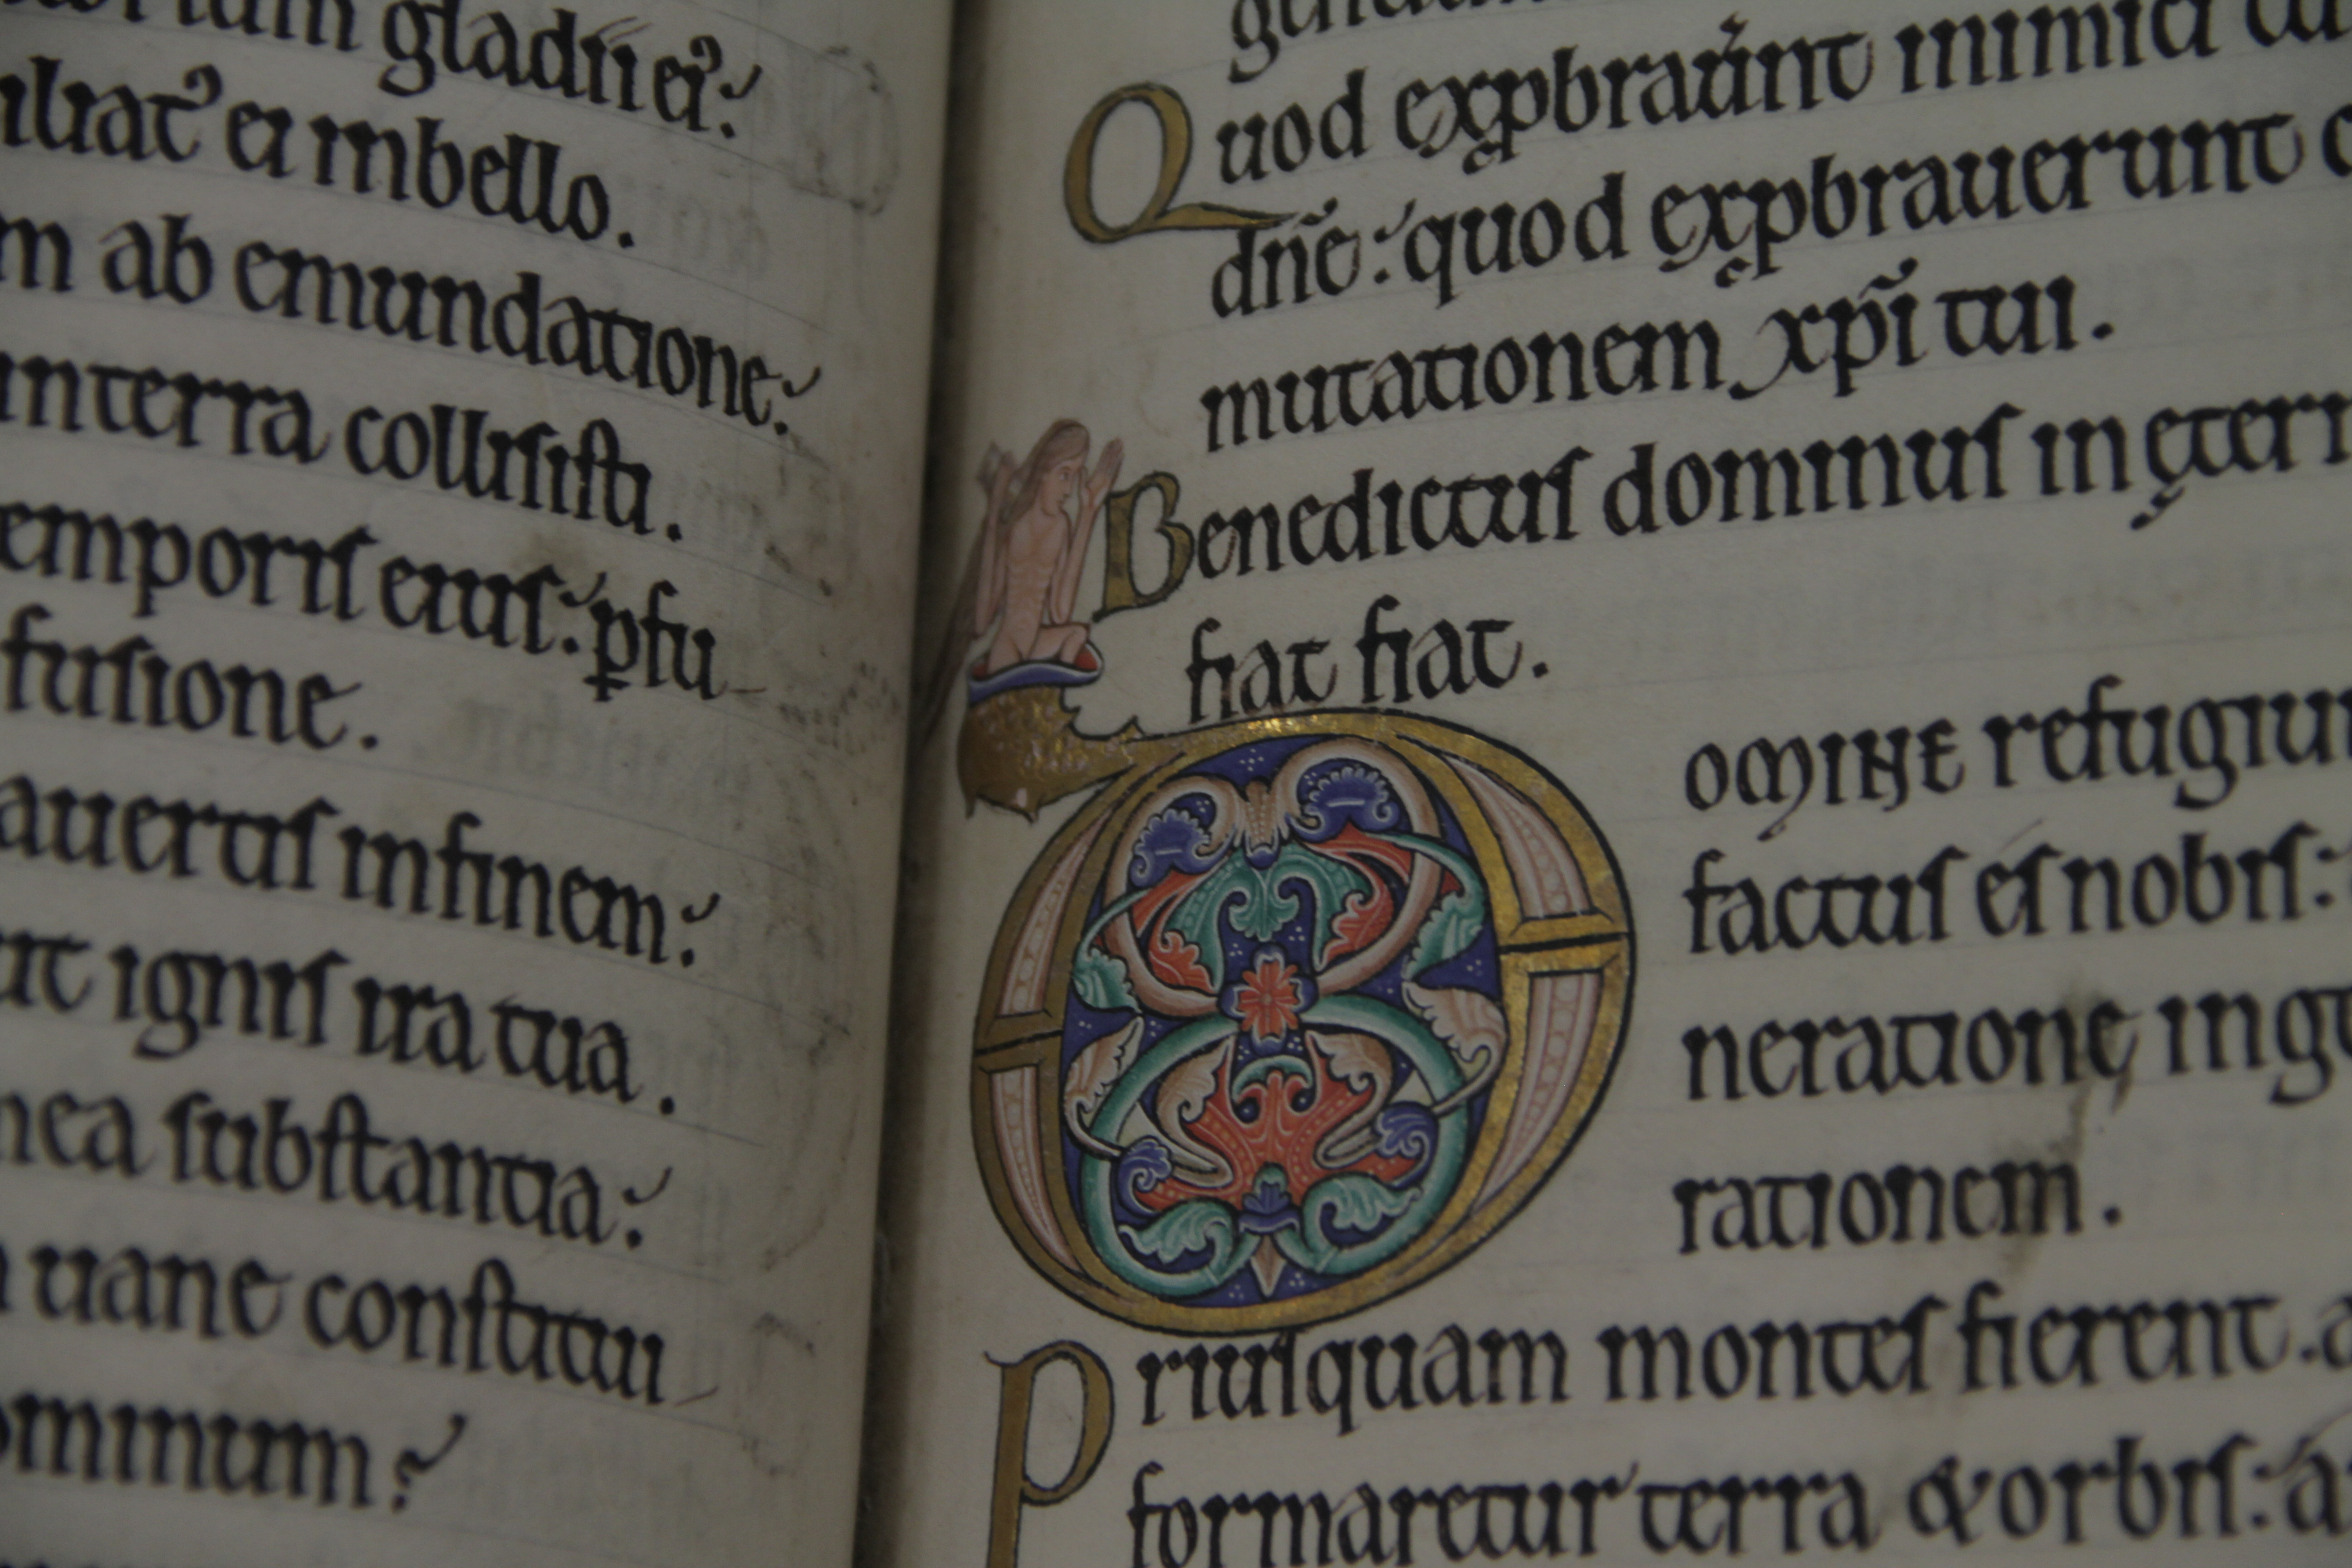 gladii ei᾽:
iliat᾽ ei inbello.
m ab emundatione:
interra collisisti.
emporis eius: ꝑfu
fusione.
auertis infinem:
ignis ira tua.
mea substantia:
uane constitui
ominum?
Quod exꝓbraūnt inimici
dn̄e: quod exꝓbrauerunt
mutationem xp̄i tui.
Benedictus dominus in ętern
fiat fiat.
DOMINE refugiu
factus es nobis:
neratione inge
rationem.
Priusquam montes fierent. a
formaretur terra & orbis: a